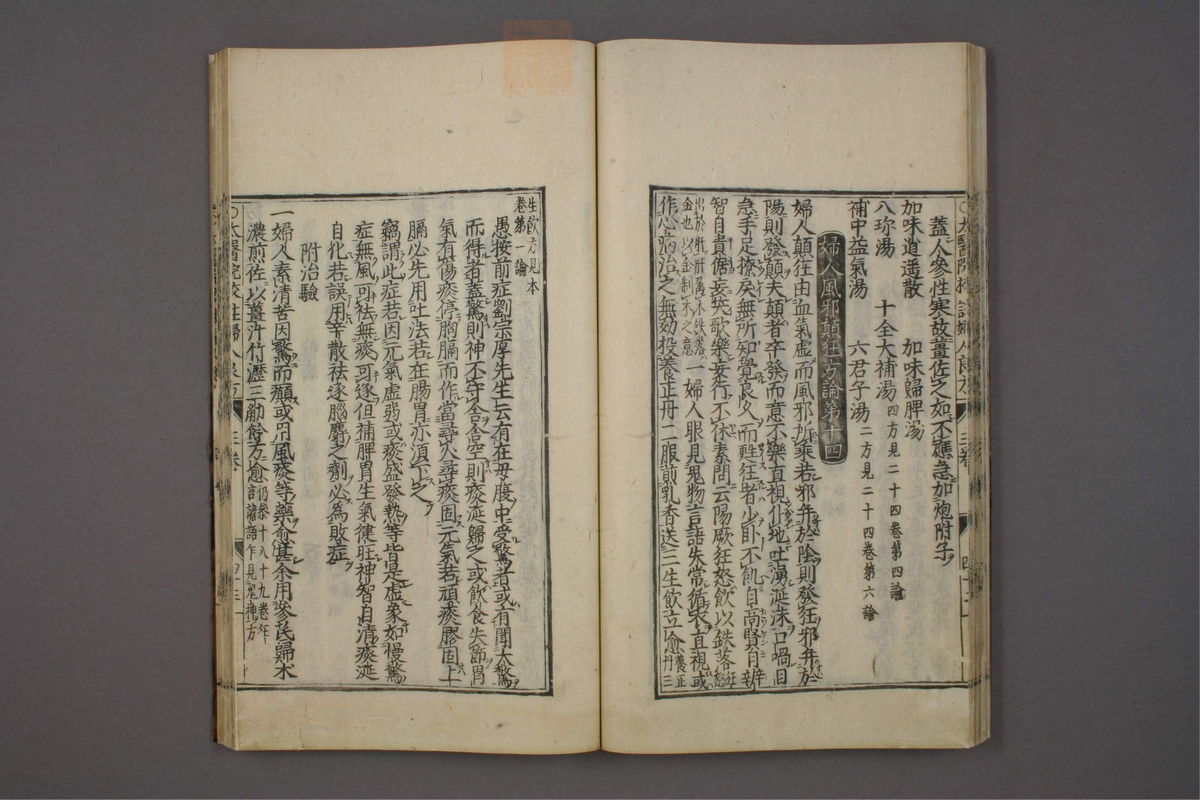 蓋人參性寒故薑佐之如不應急加炮附子
加味逍遙散　加味歸脾湯
八珍湯　十全大補湯四方見二十四卷第四論
補中益氣湯　六君子湯二方見二十四卷第六論
婦人風邪顛狂方論第十四
婦人顛狂由血氣虛而風邪所乘若邪并於陰則發狂邪并於
陽則發顛夫顛者卒發而意不樂直視仆地吐湧涎沫口喎目
急手足撩戾無所知覺良久而甦狂者少臥不飢自高賢自辨
智自貴倨妄笑歌樂妄行不休素問云陽厥狂怒飲以鉄落狂怒
出於肝肝屬木鉄落金也以金制木之意一婦人眼見鬼物言語失常循衣直視或
作心病治之無効投養正丹二服煎乳香送三生飲立愈養正丹三
生飲方見本卷第一論
愚按前症劉宗厚先生云有在母腹中受驚者或有聞大驚
而得者蓋驚則神不守舍舍空則痰涎歸之或飲食失節胃
氣有傷痰停胸膈而作當尋火尋痰固元氣若頑痰膠固上
膈必先用吐法若在腸胃亦須下之
竊謂此症若因元氣虛弱或痰盛發熱等皆是虛象如慢驚
症無風可祛無痰可逐但補脾胃生氣徤旺神智自清痰涎
自化若誤用辛散祛逐腦麝之劑必為敗症
附治驗
一婦人素清苦因驚而癲或用風痰等藥愈甚余用參芪歸朮
濃煎佐以薑汁竹瀝三觔餘方愈